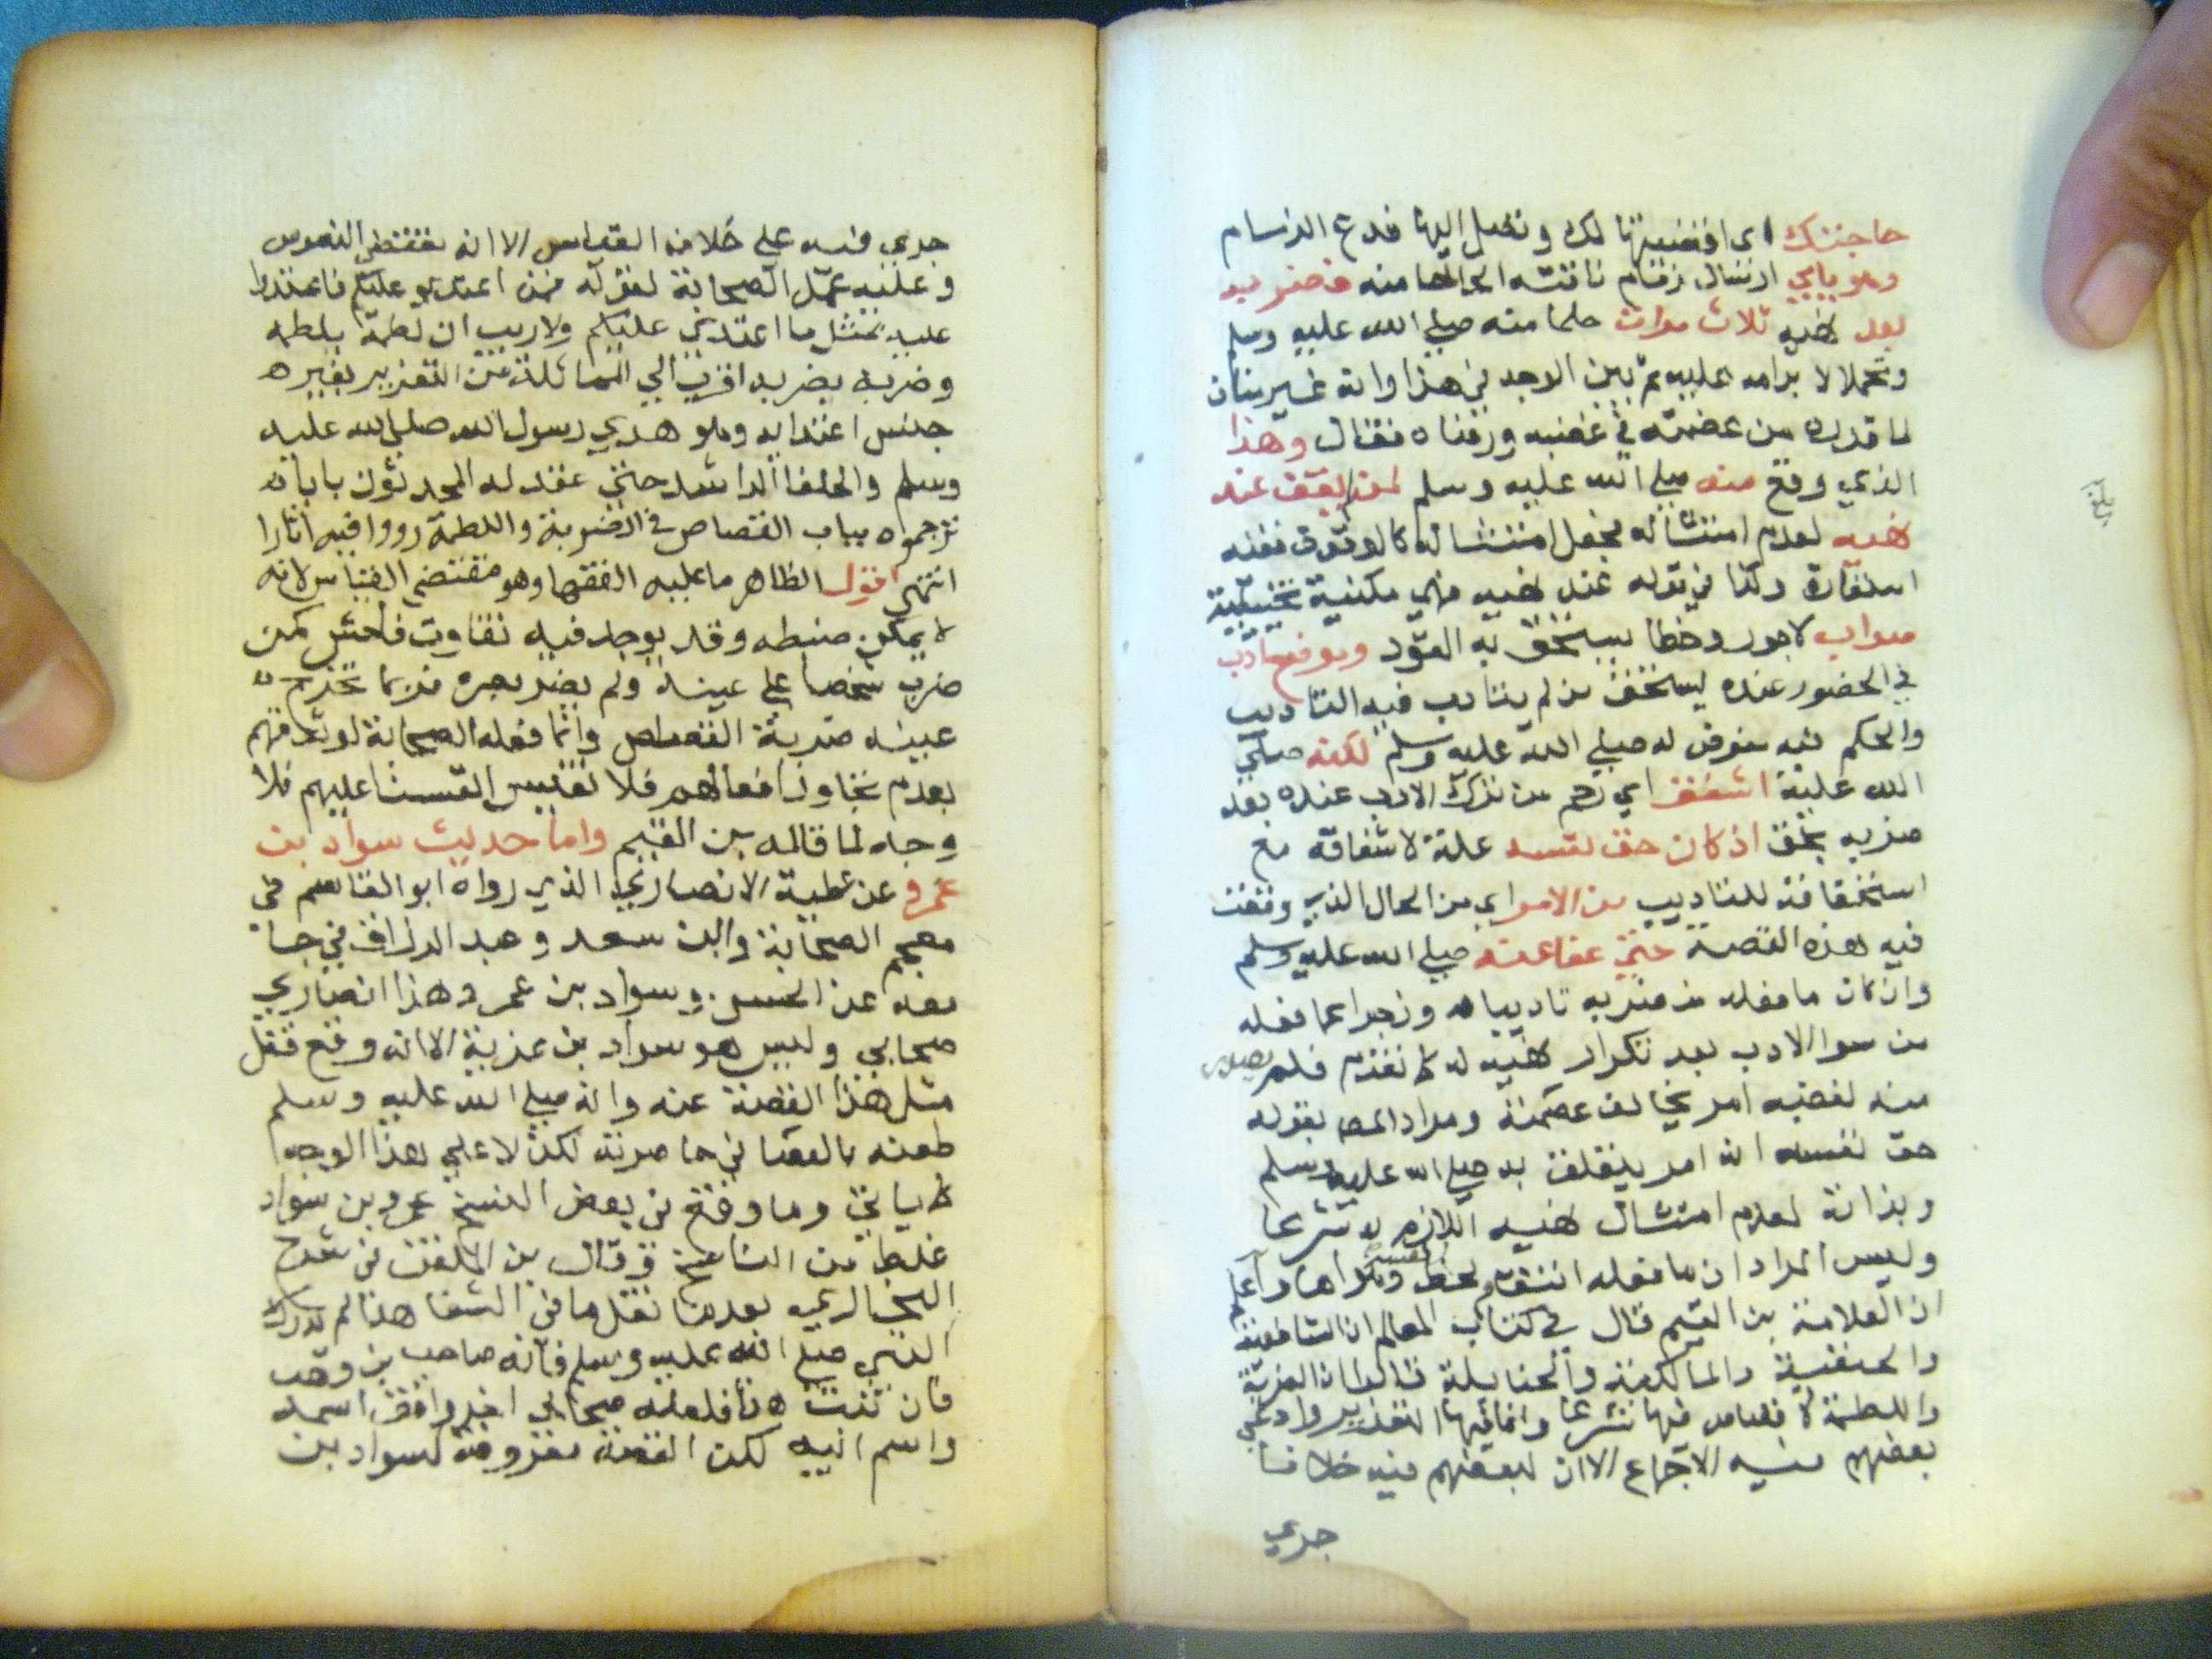 حاجتك اى اقضيها لك وتصل اليها فدع الزمام
وهو يابي ارسال زمام ناقته الحاحا منه فضربه
بعد نهيه ثلاث مرات حلما منه صلي الله عليه وسلم
وتحملا لابرامه عليه ثم بين الوجه في هذا وانه غير منان
لما قدره من عصمته في غضبه ورضاه فقال وهذا
الذي وقع منه صلي الله عليه وسلم لمن لم يقف عند
نهيه لعدم امتثاله بجعل امتثاله كالوقوف ففيه
استعارة وكذا في قوله عند نهيه فهي مكنية تخييلية
صواب لا جور وخطا يستحق به القود وموضع ادب
في الحضور عنده ليستحق من لم يتادب فيه التاديب
والحكم فيه مفوض له صلي الله عليه وسلم لكنه صلي
الله عليه اشفق اي رحم من ترك الادب عنده بعد
ضربه بحق اذ كان حق نفسه علة لاشفاقه مع
استحقاقه للتاديب من الامر اي من الحال الذي وقعت
فيه هذه القصة حتي عفا عنه صلي الله عليه وسلم
وان كان ما فعله من ضربه تاديبا له وزجرا عما فعله
من سوا الادب بعد تكرار نهيه له كما تقدم فلم يصدر
منه لغضبه امر يخالف عصمته ومراد المص بقوله
حق نفسه انه امر يتعلق به صلي الله عليه وسلم
وبذاته لعدم امتثال نهيه اللازم له شرعا
وليس المراد ان ما فعله انتقام لحظ نفسه وهواها واعلم
ان العلامة بن القيم قال في كتاب المعالم ان الشافعية
والحنفية والمالكية والحنابلة قالوا ان الضربة
واللطمة لا قصاص فيها شرعا وانما فيها التعزير وادعي
بعضهم فيه الاجماع الا ان لبعضهم فيه خلافا
جري
جري فيه علي خلاف القياس الا انه مقتضي النصوص
وعليه عمل الصحابة لقوله فمن اعتدي عليكم فاعتدوا
عليه بمثل ما اعتدي عليكم ولا ريب ان لطمة بلطمه
وضربه بضربه اقرب الي المماثلة من التعزير بغيره
جنس اعتدايه وهو هدي رسول الله صلي الله عليه
وسلم والخلفا الراشد حتي عقد له المحدثون بابا
ترجموه بباب القصاص في الضربة واللطمة رووا فيه اثارا
انتهي اقول الظاهر ما عليه الفقها وهو مقتضي القياس لانه
لا يمكن ضبطه وقد يوجد فيه تفاوت فاحش كمن
ضرب شخصا علي عينه ولم يضر بصره فربما تخرج
عينه ضربة القصاص وانما فعله الصحابة لوثوقهم
بعدم تجاوز افعالهم فلا نقيس انفسنا عليهم فلا
وجه لما قاله بن القيم واما حديث سواد بن
عمرو عن عطية الانصاري الذي رواه ابو القاسم في
معجم الصحابة وابن سعد وعبد الرزاق في جا
معه عن الحسن وسواد بن عمرو هذا انصاري
صحابي وليس هو سواد بن غزية الا انه وقع فنقل
مثل هذا القصة عنه وانه صلي الله عليه وسلم
طعنه بالعصا في خاصرته لكن لا علي هذا الوجه
كما ياتي وما وقع في بعض النسخ عمرو بن سواد
غلط من الناسخ وقال بن الملقن في شرح
البخاري بعدما نقل ما في الشفا هذا لم يدرك
النبي صلي الله عليه وسلم فانه صاحب بن وهب
فان ثبت هذا فلعله صحابي اخر وافق اسمه
واسم ابيه لكن القصة معروفة لسواد بن